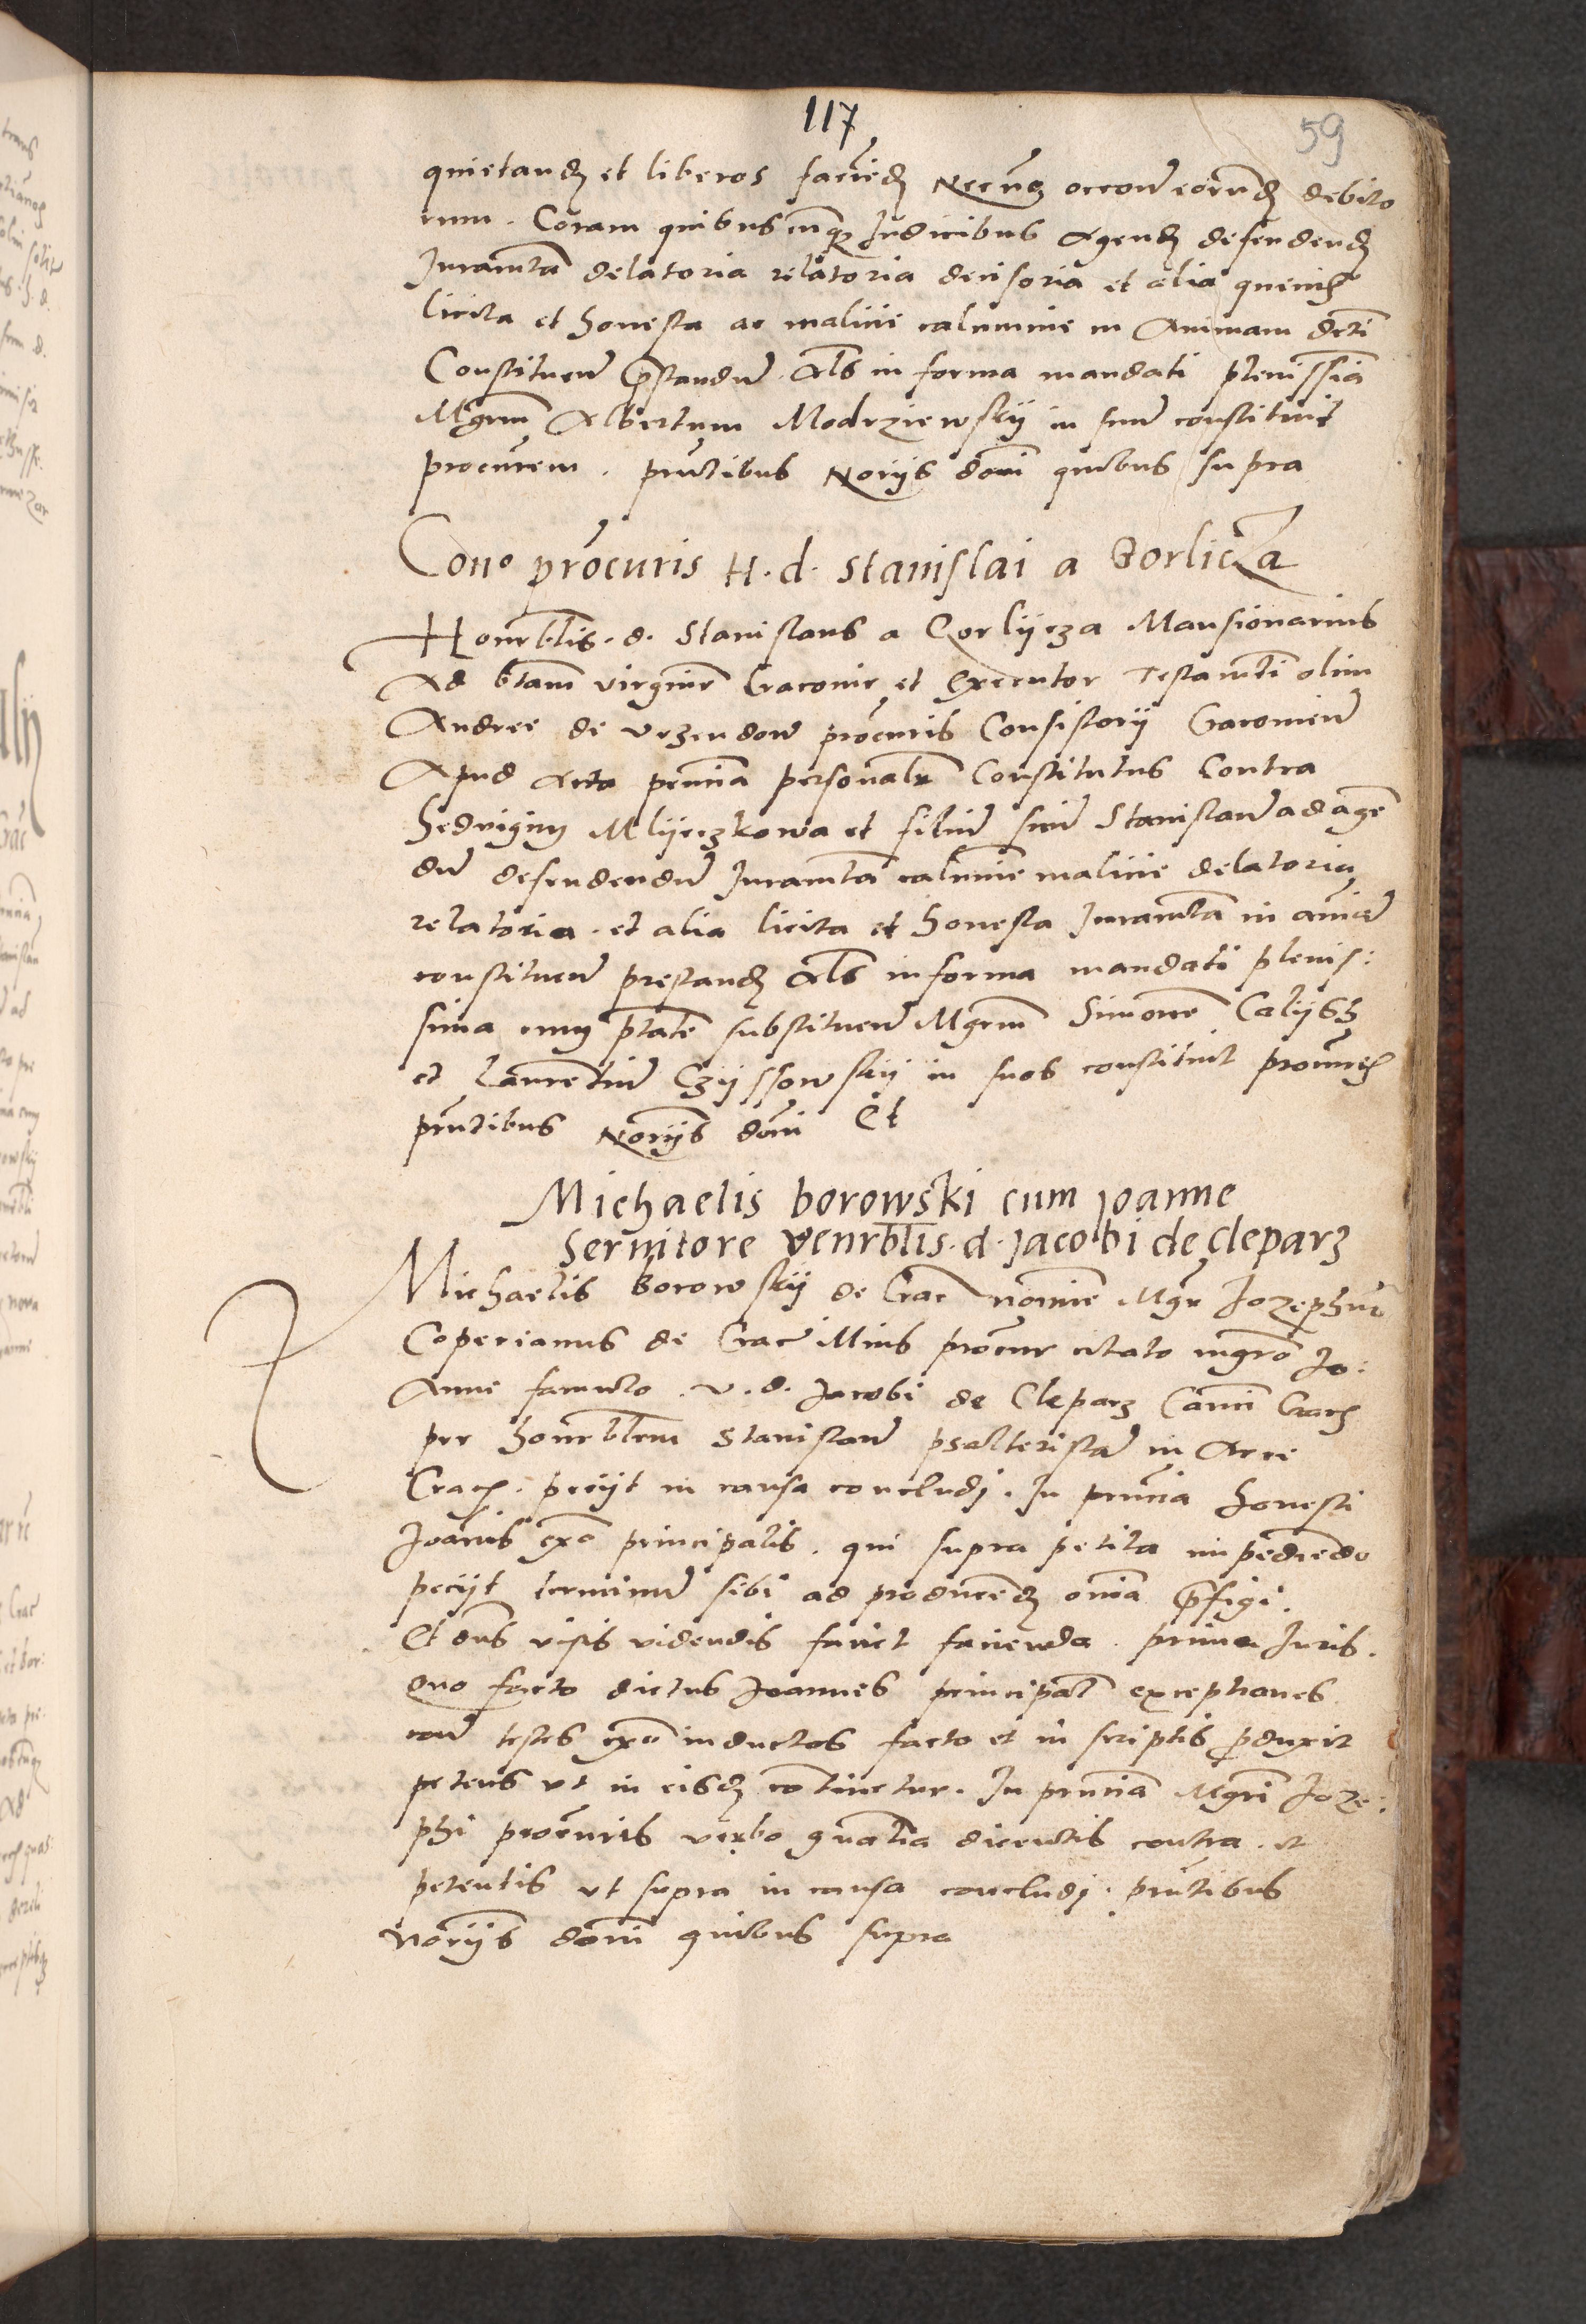 117
59
quietandꝫ et liberos faciēdꝫ Necnō occoñe eorundꝫ debito
rum. Coram quibuscunqꝫ Judicibus Agendꝫ defendendꝫ
Juramta delatoria relatoria decisoria et alia quecunqꝫ
licita et honesta ac malicie calumnie in Animam dcti
Constituen p̄standū Als in forma mandati pleniss̄ia
Mgrum Albertum Modrziewskij in suū constituit
procurem. pn̄tibus Norijs dom̄i quibus supra
Cono procuris H. d. Stanislai a Gorlicza
Honrblis. d. Stanislaus a Gorlijcza Mansionarius
Ad btam virginē Cracovie et Executor Testamti olim
Andree de Vrzendow procuris Consistorij Cracovien
Apud Acta pn̄cia personalr Constitutus Contra
hedvigim Mlijeczkowa et filiū suū Stanislaū ad agē
dū defendendū Juramta calūnie malicie delatoria
relatoria. et alia licita et honesta Juramta in aiam
constituen prestandꝫ Als in forma mandati plenis:
sima cum ptate substituen Mgrum Simonē Calijsꝫ
et Laurentiū Czijssowskij in suos constituit procures
pn̄tibus Norijs dom̄i Et
Michaelis borowski cum joanne
Seruitore venrblis. d. jacobi de cleparz
Michaelis Borowskij de Crac̄ nomine Mgr Jozephus
Coperianus de Crac̄ illius procur citato mgro Jo:
Anne famulo. v. d. Jacobi de Cleparz Can̄ci Cracꝫ
per honrblem Stanislaū psalteristā in Arce
Cracꝫ. pecijt in causa concludj. In pn̄cia honesti
Joanis exo principalis. qui supra petita impediendo
pecijt terminū sibi ad producendꝫ omīa p̄figi.
Et dn̄s visis videndis faciet facienda. prima Juris.
Quo facto dictus Joannes principal exceptiones
con testes exo inductos facto et in scriptis produxit
petens vt in eisdꝫ continetur. In pn̄ciam Mgri Joze:
phi procuris verbo gnalia dicentis contra. et
petentis vt supra in causa concludj. pn̄tibus
Norijs dom̄i quibus supra